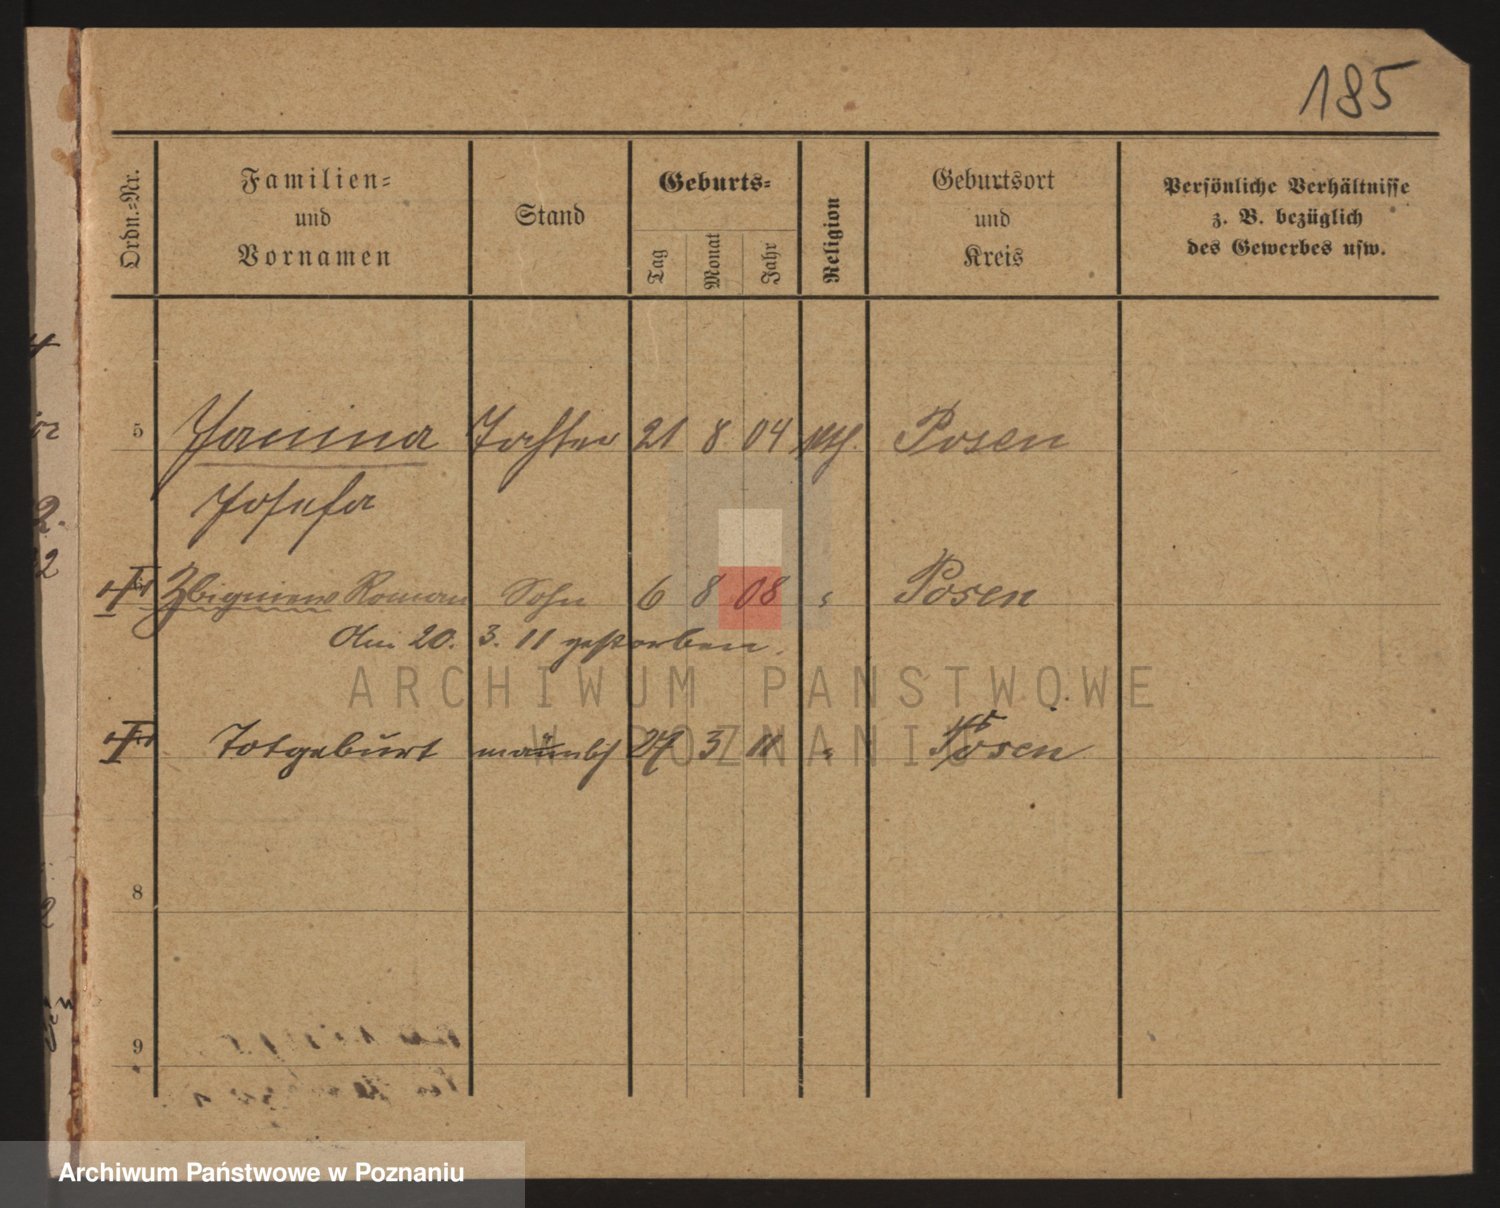 185
Ordn.=Nr.
Familien=
und
Vornamen
Stand
Geburts=
Tag
Monat
Jahr
Religion
Geburtsort
und
Kreis
Persönliche Verhältnisse
z. B. bezüglich
des Gewerbes usw.
5 Janina Tochter 21 8 04 kth. Posen
Josefa
Zbigniew Roman Sohn 6 8 08 " Posen
Am 20. 3. 11 gestorben.
Totgeburt männlch 27 3 11 " Posen
8
9
ARCHIWUM PAŃSTWOWE
W POZNANIU
Archiwum Państwowe w Poznaniu